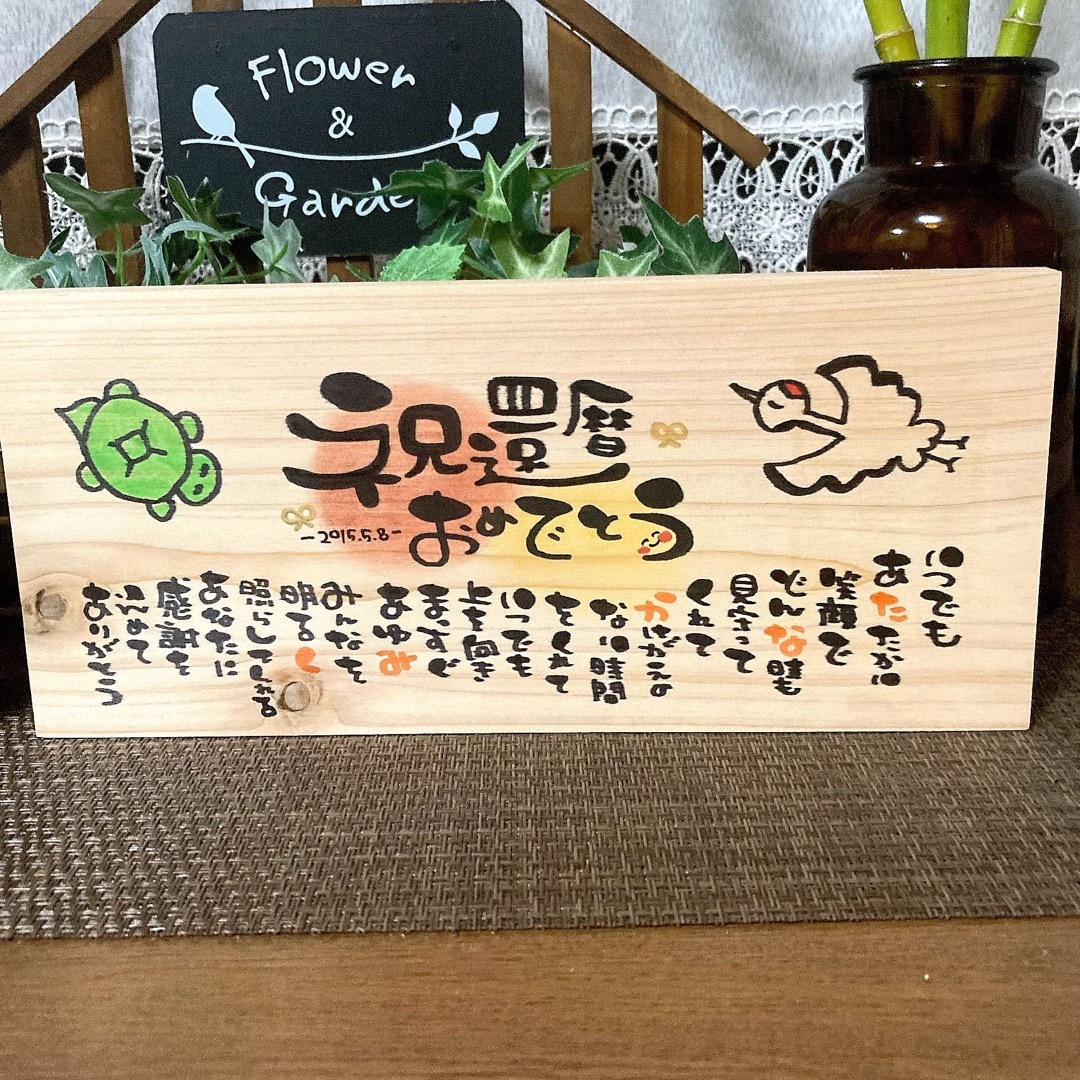 Flower
&
Garde
祝還暦
おめでとう
-2015.5.8-
いつでも
あたたかい
笑顔で
どんな時も
見守って
くれて
かけがえの
ない時間
をくれて
いつでも
上を向き
まっすぐ
あゆみ
みんなを
明るく
照らしてくれる
あなたに
感謝を
こめて
ありがとう